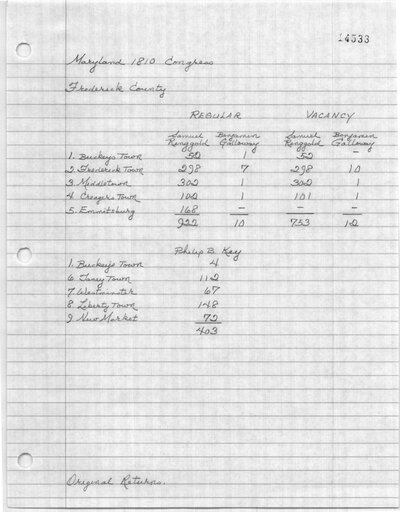 14533
Maryland 1810 Congress
Frederick County
REGULAR VACANCY
Samuel Benjamin Samuel Benjamin
Ringgold Galloway Ringgold Galloway
1. Buckeys Town 52 1 52 –
2. Frederick Town 298 7 298 10
3. Middletown 302 1 302 1
4. Creagers Town 102 1 101 1
5. Emmitsburg 168 – – –
922 10 753 12
Philip B. Key
1. Buckeys Town 4
6. Taney Town 112
7. Westminster 67
8. Liberty Town 148
9. New Market 72
403
Original Returns.